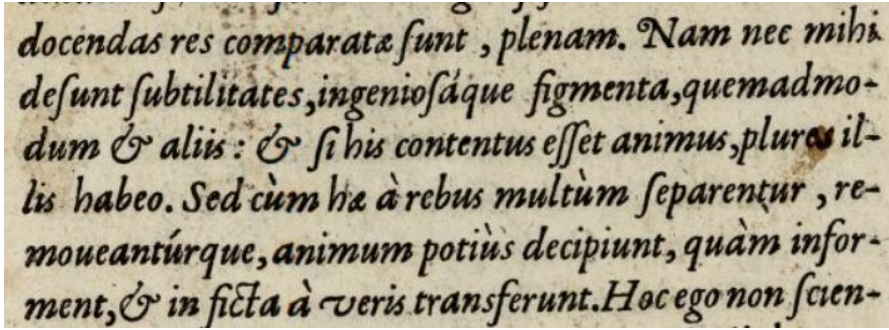 docendas res comparatæ ſunt, plenam. Nam nec mihi
deſunt ſubtilitates, ingenioſáque figmenta, quemadmo-
dum & aliis: & ſi his contentus eſſet animus, plures il-
lis habeo. Sed cùm hæ à rebus multùm ſeparentur, re-
moueantúrque, animum potiùs decipiunt, quàm infor-
ment, & in ficta à veris transferunt. Hoc ego non ſcien-